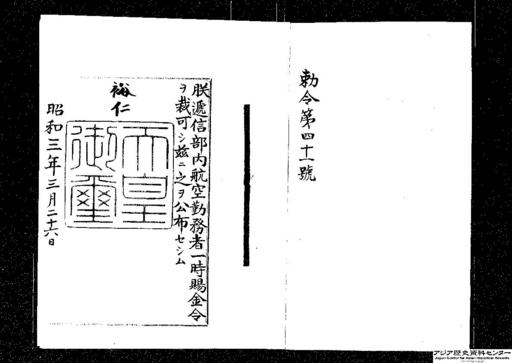 勅令第四十一號
朕遞信部内航空勤務者一時賜金令
ヲ裁可シ茲ニ之ヲ公布セシム
裕仁
天皇御璽
昭和三年三月二十六日
アジア歴史資料センター
Japan Center for Asian Historical Records